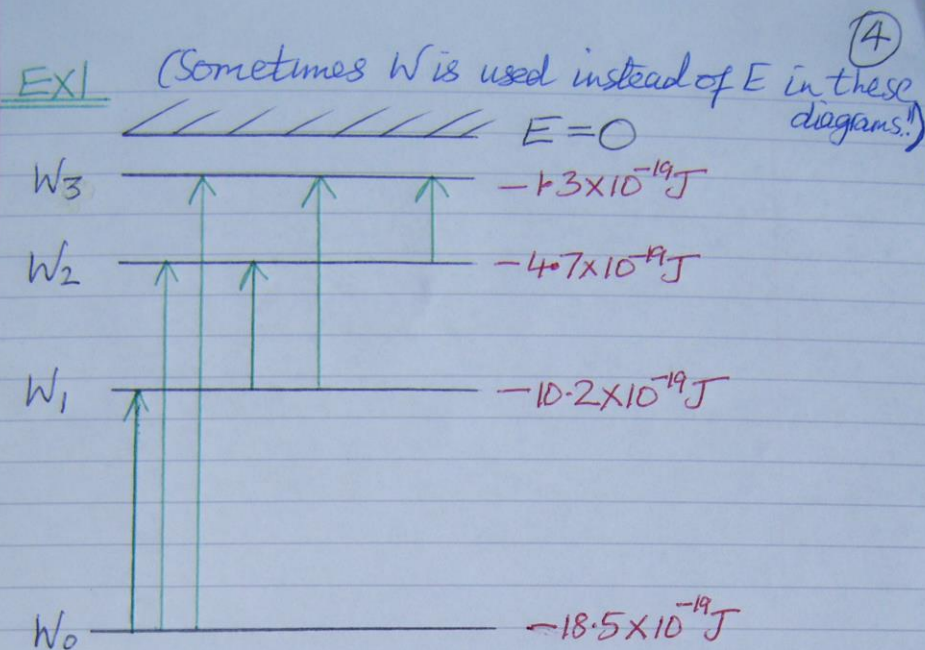 4
EX1 (Sometimes W is used instead of E in these
diagrams!!)
E=0
W3 -1.3x10^-19 J
W2 -4.7x10^-19 J
W1 -10.2x10^-19 J
W0 -18.5x10^-19 J